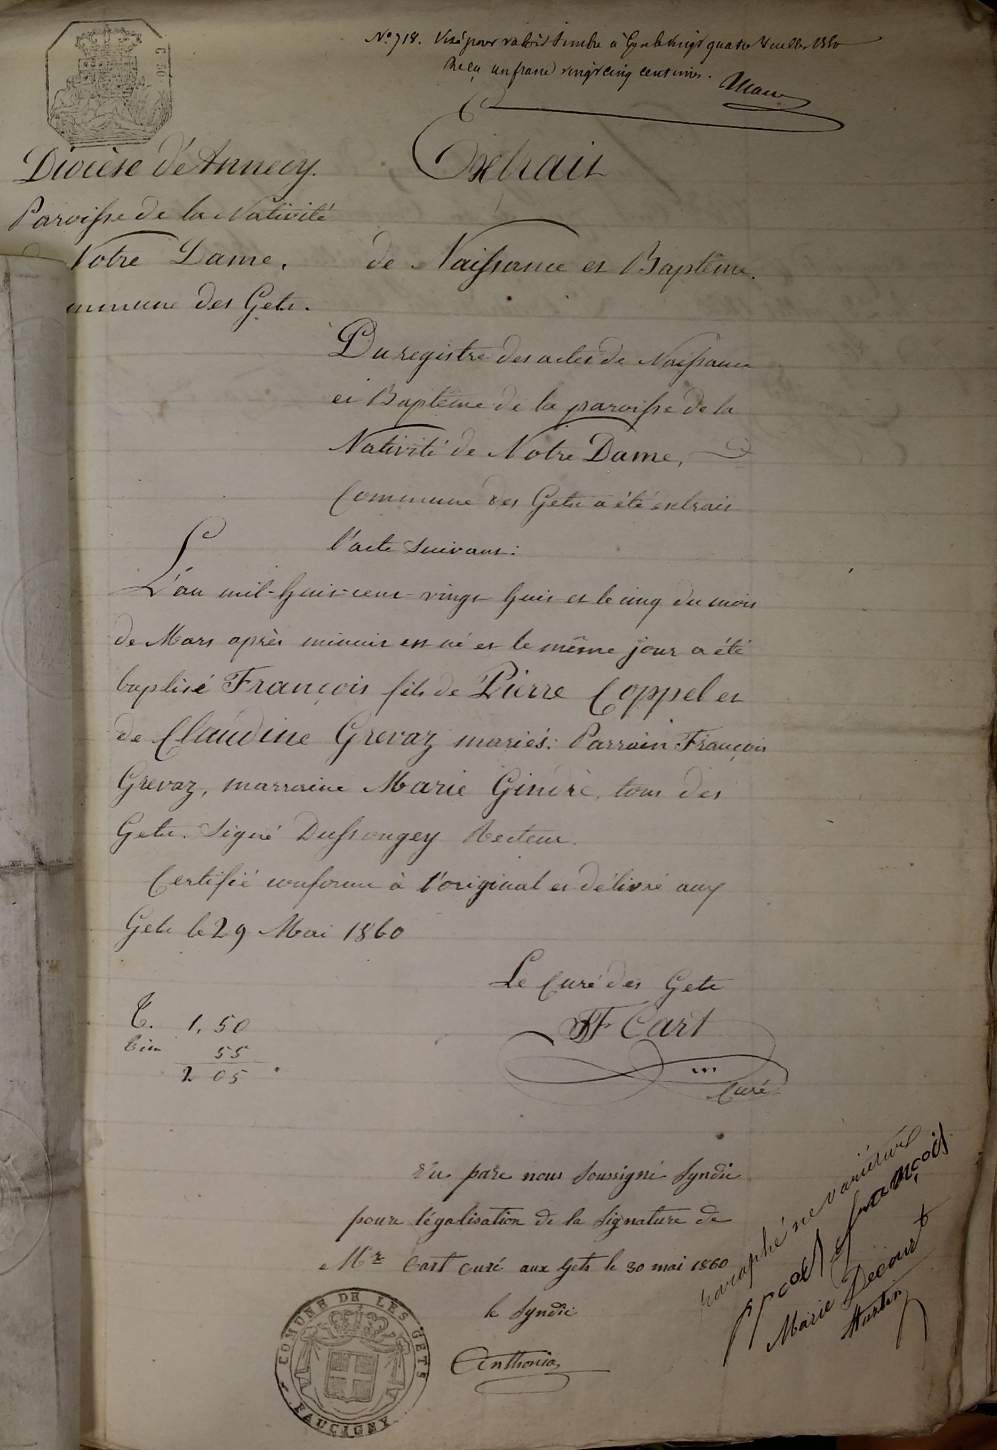 N° 718. Visé pour valoir timbre à vingt quatre 1860
Reçu un franc vingt cinq centimes.
C. 50
Diocèse d'Annecy.
Extrait
Paroisse de la Nativité
Notre Dame.
de Naissance et Baptême.
mmune des Gets.
Du registre des actes de Naissance
et Baptême de la paroisse de la
Nativité de Notre Dame,
Commune des Gets a été extrait
l'acte suivant:
L'an mil-huit-cent-vingt-huit et le cinq du mois
de Mars après minuit est né et le même jour a été
baptisé François fils de Pierre Coppel et
de Claudine Grevaz mariés: Parrain François
Grevaz, marraine Marie Gindre, tous des
Gets. Signé Dussongey Recteur.
Certifié conforme à l'original et délivré aux
Gets le 29 Mai 1860
Le Curé des Gets
T. 1,50
55
2 05
JF Cart
Curé
Vu pare nous soussigné syndic
pour légalisation de la signature de
Mr Cart curé aux Gets le 30 mai 1860
le syndic
Anthonioz
COMUNE DE LES GETS
FAUCIGNY
paraphé ne varietur
François
Marie Décourt